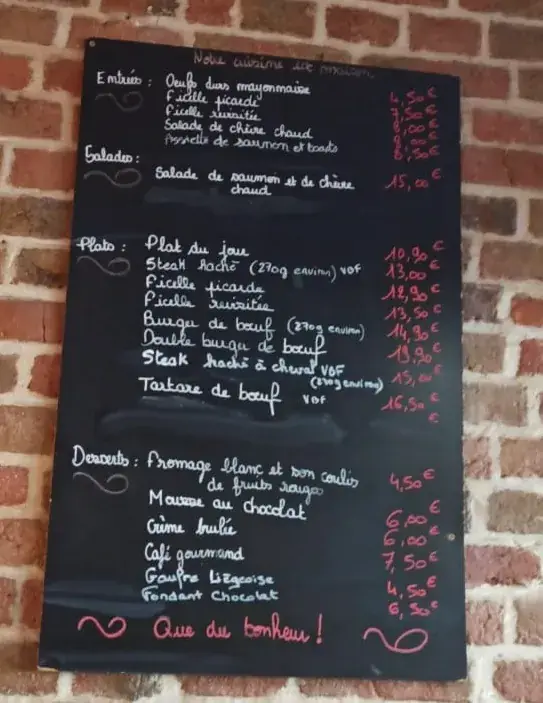 Notre cuisine est maison
Entrées : Oeufs durs mayonnaise 4,50 €
Ficelle picarde 7,50 €
Ficelle revisitée 8,00 €
Salade de chèvre chaud 8,00 €
Assiette de saumon et toasts 8,50 €
Salades :
Salade de saumon et de chèvre chaud 15,00 €
Plats : Plat du jour 10,90 €
Steak haché (270g environ) VBF 13,00 €
Ficelle picarde 12,90 €
Ficelle revisitée 13,50 €
Burger de bœuf (270g environ) 14,90 €
Double burger de bœuf 19,90 €
Steak haché à cheval VBF (270g environ) 15,00 €
Tartare de bœuf VBF 16,50 €
€
Desserts : Fromage blanc et son coulis
de fruits rouges 4,50 €
Mousse au chocolat 6,00 €
Crème brulée 6,00 €
Café gourmand 7,50 €
Gaufre Liégeoise 4,50 €
Fondant Chocolat 6,50 €
Que du bonheur !